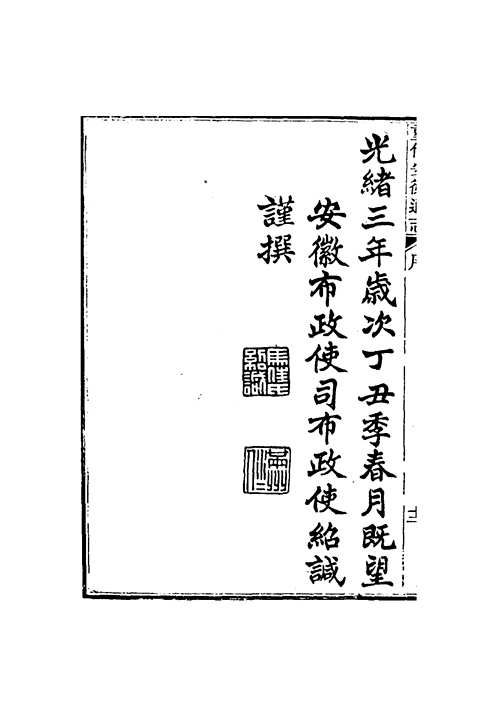 光緒三年歲次丁丑季春月既望
安徽布政使司布政使紹諴
謹撰